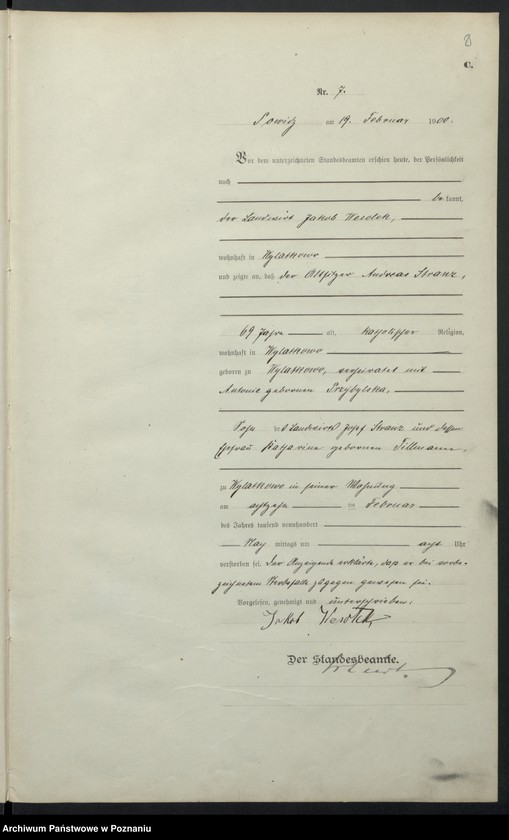 8
C.
Nr. 7.
Powidz am 19. Februar 1900.
Vor dem unterzeichneten Standesbeamten erschien heute, der Persönlichkeit
nach
be kannt,
der Landwirt Jakob
wohnhaft in Wylatkowo
und zeigte an, daß der Altsitzer Andreas Stranz,
69 Jahre alt, katholischer Religion,
wohnhaft in Wylatkowo
geboren zu Wylatkowo, verheiratet mit
Antonie geborenen Przybylska,
Sohn des Landwirts Josef Stranz und dessen
Ehefrau Katharine geborenen Tillmann,
zu Wylatkowo in seiner Wohnung
am achtzehn ten Februar
des Jahres tausend neunhundert
Nach mittags um acht Uhr
verstorben sei. Der Anzeigende erklärte, daß er bei vorbe-
zeichnetem Sterbefalle zugegen gewesen sei.
Vorgelesen, genehmigt und unterschrieben.
Jakob
Der Standesbeamte.
Archiwum Państwowe w Poznaniu